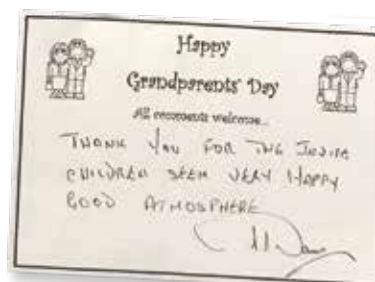 Happy
Grandparents' Day
All comments welcome...
THANK YOU FOR THE INVITE
CHILDREN SEEM VERY HAPPY
GOOD ATMOSPHERE